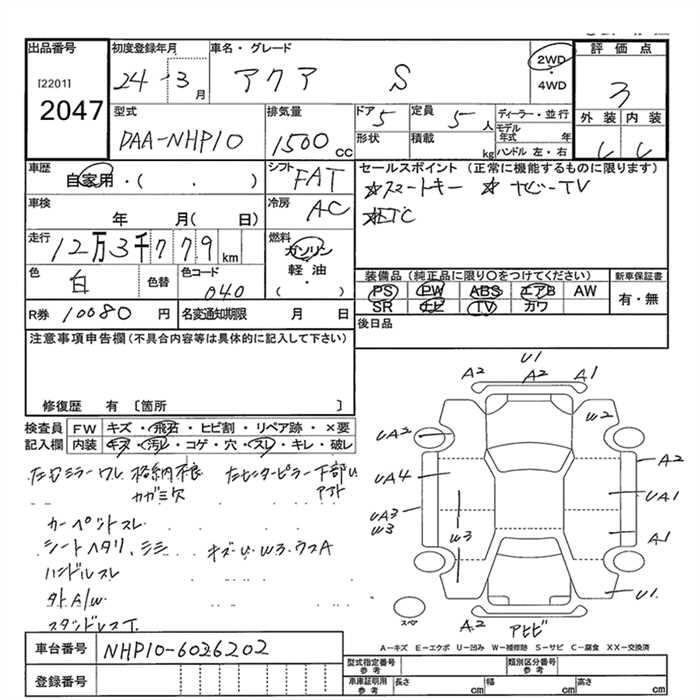 出品番号 初度登録年月 車名・グレード 評価点
[2201]
2047
24 3月
アクア S
2WD
・
4WD
3
外装 内装
C C
型式 排気量 ドア 定員 ディーラー・並行
DAA-NHP10 1500cc 5 5人
モデル年式 年
形状 積載 kg ハンドル 左・右
車歴 シフト セールスポイント (正常に機能するものに限ります)
自家用・( . ) FAT
☆スマートキー ☆ナビーTV
☆ETC
車検 年 月(日) 冷房 AC
走行 12万3千779km 燃料
ガソリン
軽油
( )
色 白 色替 色コード 040
装備品 (純正品に限り○をつけてください) 新車保証書
PS PW ABS エアB AW 有・無
SR ナビ TV カワ
R券 10080円 名変通知期限 月 日
後日品
注意事項申告欄 (不具合内容等は具体的に記入して下さい)
修復歴 有 [箇所 ]
検査員 FW キズ・飛石・ヒビ割・リペア跡・×要
記入欄 内装 キズ・汚レ・コゲ・穴・スレ・キレ・破レ
左ドアミラーワレ 格納不良
カガミ欠
カーペットスレ
シートヘタリ、シミ
ハンドルスレ
タトA/W
スタッドレスT.
U1
A2 A2 A1
UA2 W2
UA4 A2
UA3 UA1
W3 W3 A1
U1
A2 アヒビ
スペア
A-キズ E-エクボ U-凹み W-補修跡 S-サビ C-腐食 XX-交換済
車台番号 NHP10-6026202
登録番号
型式指定番号 参考 類別区分番号 参考
車庫証明用 参考 長さ cm 幅 cm 高さ cm